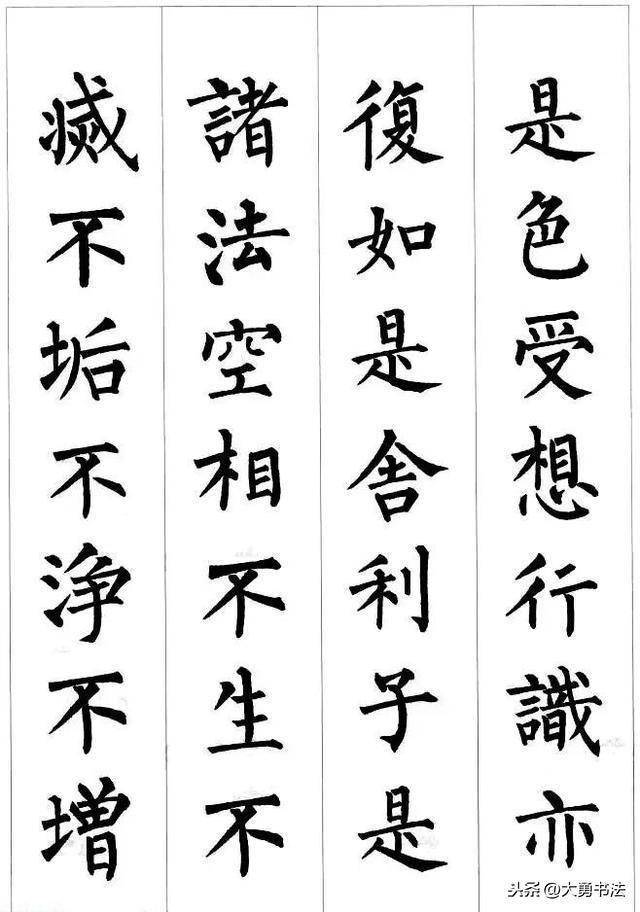 是色受想行識亦
復如是舍利子是
諸法空相不生不
滅不垢不淨不增
头条@大勇书法